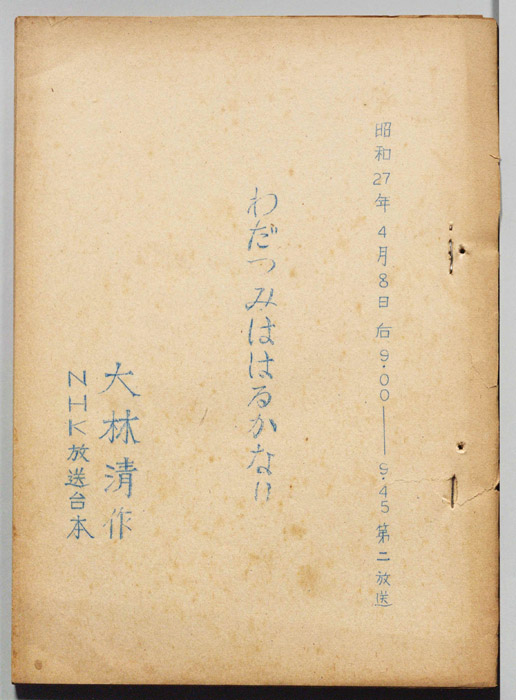 昭和27年4月8日 后9.00―9.45 第二放送
わだつみははるかなり
大林清作
NHK放送台本